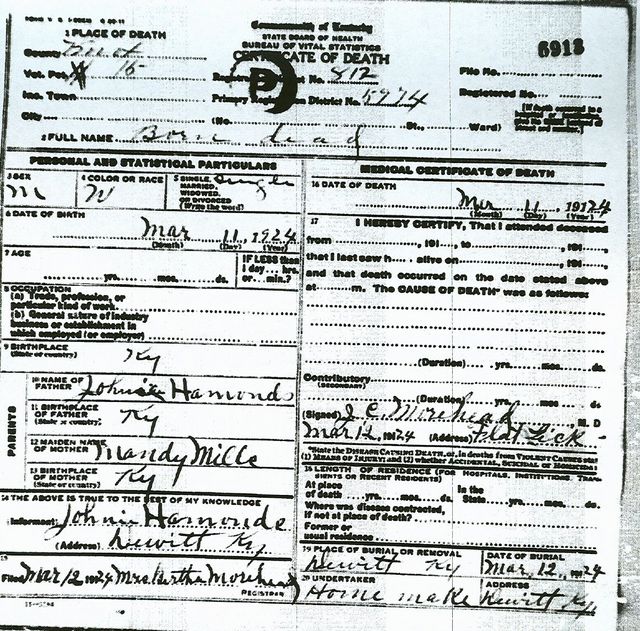 Commonwealth of Kentucky
STATE BOARD OF HEALTH
BUREAU OF VITAL STATISTICS
CERTIFICATE OF DEATH
1 PLACE OF DEATH
County
Vot. Pct. 15
Inc. Town
City
Registration District No. 812
Primary Registration District No. 5974
File No.
6913
Registered No.
(No. St., Ward)
2 FULL NAME Born dead
PERSONAL AND STATISTICAL PARTICULARS
3 SEX M
4 COLOR OR RACE W
5 SINGLE, MARRIED, WIDOWED, OR DIVORCED (Write the word) Single
6 DATE OF BIRTH
Mar 11, 1924
(Month) (Day) (Year)
7 AGE
IF LESS than
1 day... hrs.
or... min.?
yrs. mos. ds.
8 OCCUPATION
(a) Trade, profession, or
particular kind of work
(b) General nature of industry
business or establishment in
which employed (or employer)
9 BIRTHPLACE
(State or country) Ky
PARENTS
10 NAME OF FATHER Johnie Hamonds
11 BIRTHPLACE OF FATHER (State or country) Ky
12 MAIDEN NAME OF MOTHER Mandy Mills
13 BIRTHPLACE OF MOTHER (State or country) Ky
14 THE ABOVE IS TRUE TO THE BEST OF MY KNOWLEDGE
Informant Johnie Hamonds
(Address) Hewitt Ky
15
Filed Mar 12, 1924 Mrs. Bertha Morehead
REGISTRAR
MEDICAL CERTIFICATE OF DEATH
16 DATE OF DEATH
Mar 11, 1924
(Month) (Day) (Year)
17 I HEREBY CERTIFY, That I attended deceased
from , 191 , to , 191 ,
that I last saw h alive on , 191 ,
and that death occurred on the date stated above
at m. The CAUSE OF DEATH* was as follows:
(Duration) yrs. mos. ds.
Contributory
(SECONDARY)
(Duration) yrs. mos. ds.
(Signed) J. C. Morehead, M. D
Mar 12, 1924 (Address) Flat Lick
*State the DISEASE CAUSING DEATH, or, in deaths from VIOLENT CAUSES state
(1) MEANS OF INJURY; and (2) whether ACCIDENTAL, SUICIDAL or HOMICIDAL
18 LENGTH OF RESIDENCE (FOR HOSPITALS, INSTITUTIONS, TRANSIENTS OR RECENT RESIDENTS)
At place of death yrs. mos. ds.
In the State yrs. mos. ds.
Where was disease contracted,
if not at place of death?
Former or
usual residence
19 PLACE OF BURIAL OR REMOVAL
Hewitt Ky
DATE OF BURIAL
Mar, 12, 1924
20 UNDERTAKER
Home make
ADDRESS
Hewitt Ky